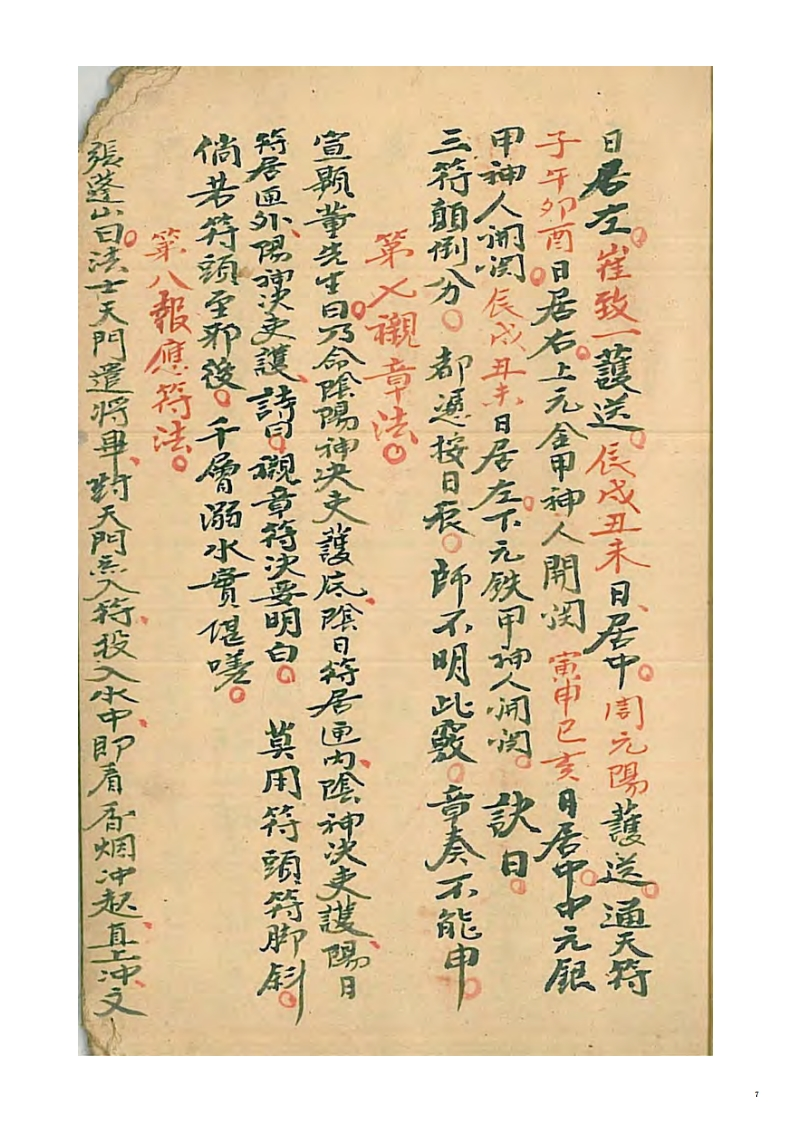 日居左。崔致一護送。辰戌丑未日、居中。周元陽護送。通天符
子午卯酉。日居右。上元金甲神人開関 寅申巳亥日居中。中元銀
甲神人開関 辰戌丑未日居左。下元鉄甲神人開関。訣曰。
三符顛倒分。 都憑按日辰。師不明此竅。章奏不能申。
第七襯章法。
宣顯董先生曰。乃命陰陽神決吏護底、陰日符居匣内、陰神決吏護、陽日
符居匣外、陽神決吏護、詩曰。襯章符決要明白。 莫用符頭符脚斜。
倘若符頭至邪後。千層溺水實堪嗟。
第八報應符法。
張蓬山曰。法士天門遣將畢、對天門入符投入水中、即看香烟冲起、直上冲、文
7